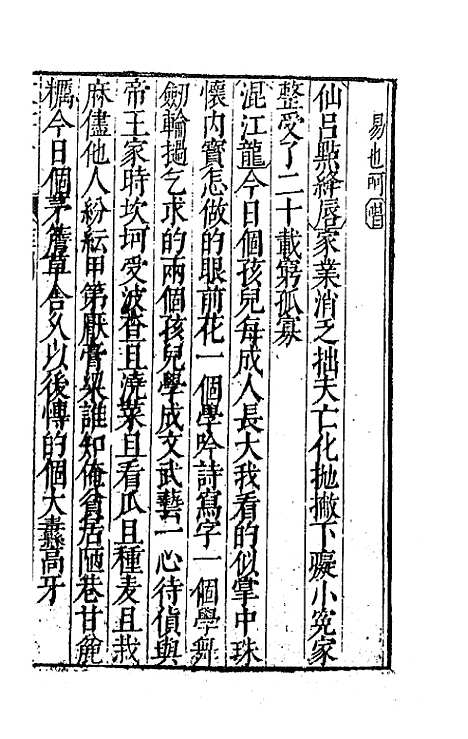 易也呵〔唱〕
仙吕點絳唇家業消乏拙夫亡化抛撇下癡小冤家
整受了二十載窮孤寡
混江龍今日個孩兒每成人長大我看的似掌中珠
懷内寶怎做的眼前花一個學吟詩寫字一個學舞
劒輪撾乞求的兩個孩兒學成文武藝一心待貨與
帝王家時坎坷受波查且澆菜且看瓜且種麦且栽
麻儘他人紛紜甲第厭膏梁誰知俺貧居陋巷甘麄
糲今日個茅簷草舍久以後博的個大纛高牙